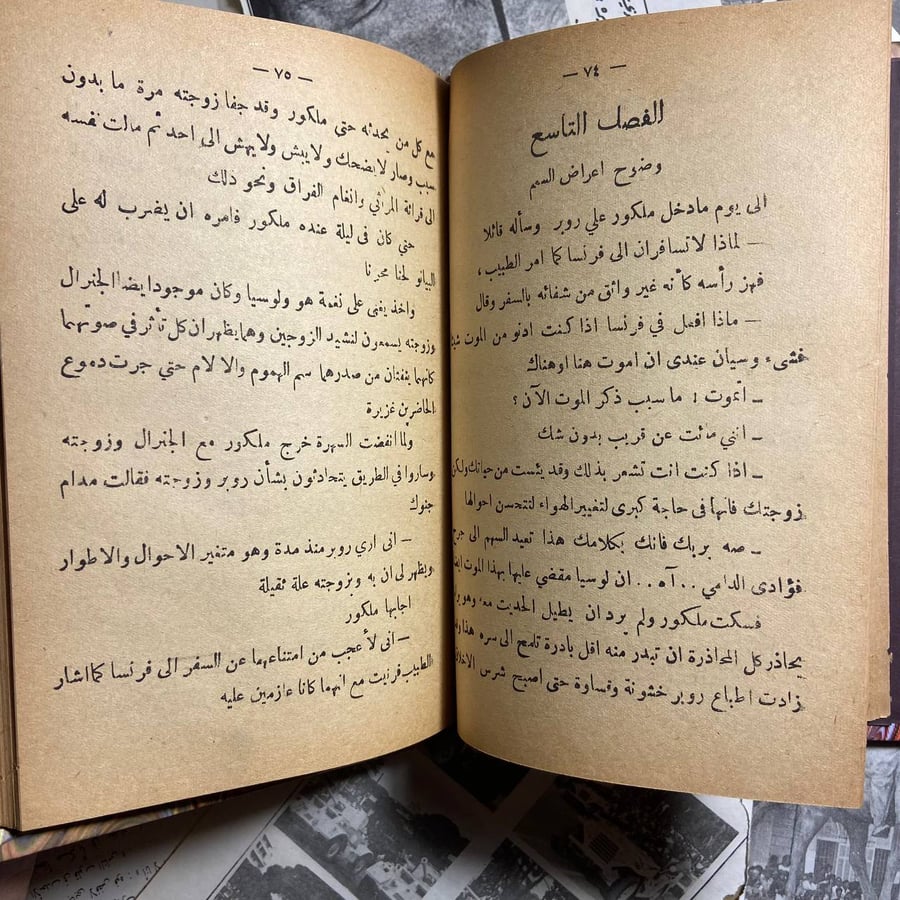 — ٧٤ —
الفصل التاسع
وضوح اعراض السم
الى يوم مادخل ملكور علي روبر وسأله قائلا
— لماذا لاتسافران الى فرنسا كما امر الطبيب،
فهز رأسه كأنه غير واثق من شفائه بالسفر وقال
— ماذا افعل في فرنسا اذا كنت ادنو من الموت
فشىء وسيان عندى ان اموت هنا اوهناك
— اتموت ! ما سبب ذكر الموت الآن ؟
— انني مائت عن قريب بدون شك
— اذا كنت انت تشعر بذلك وقد يئست من حياتك ولكن
زوجتك فانها فى حاجة كبرى لتغيير الهواء لتتحسن احوالها
— صه بربك فانك بكلامك هذا تعيد السهم الى جرح
فؤادى الدامي . . آه . . ان لوسيا مقضي عليها بهذا الموت
فسكت ملكور ولم يرد ان يطيل الحديث معه وهو
يحاذر كل المحاذرة ان تبدر منه اقل بادرة تلمح الى سره هذا
زادت اطباع روبر خشونة وقساوة حتى اصبح شرس
— ٧٥ —
مع كل من يحدثه حتي ملكور وقد جفا زوجته مرة ما بدون
سبب وصار لايضحك ولايبش ولايهش الى احد ثم مالت نفسه
الى قرائة المراثي وانغام الفراق ونحو ذلك
حتي كان فى ليلة عنده ملكور فامره ان يضرب له على
البيانو لحنا محزنا
واخذ يغنى على نغمة هو ولوسيا وكان موجودا ايضا الجنرال
وزوجته يسمعون لنشيد الزوجين وهما يظهران كل تأثر في صوتهما
كانهما ينفثان من صدرهما سم الهموم والا لام حتي جرت دموع
الحاضرين غزيرة
ولما انفضت السهرة خرج ملكور مع الجنرال وزوجته
وساروا في الطريق يتحادثون بشأن روبر وزوجته فقالت مدام
جنوك
— انى اري روبر منذ مدة وهو متغير الاحوال والاطوار
ويظهر لى ان به وبزوجته علة ثقيلة
اجابها ملكور
— انى لأ عجب من امتناعهما عن السفر الى فرنسا كما اشار
الطبيب مع انهما كانا عازمين عليه